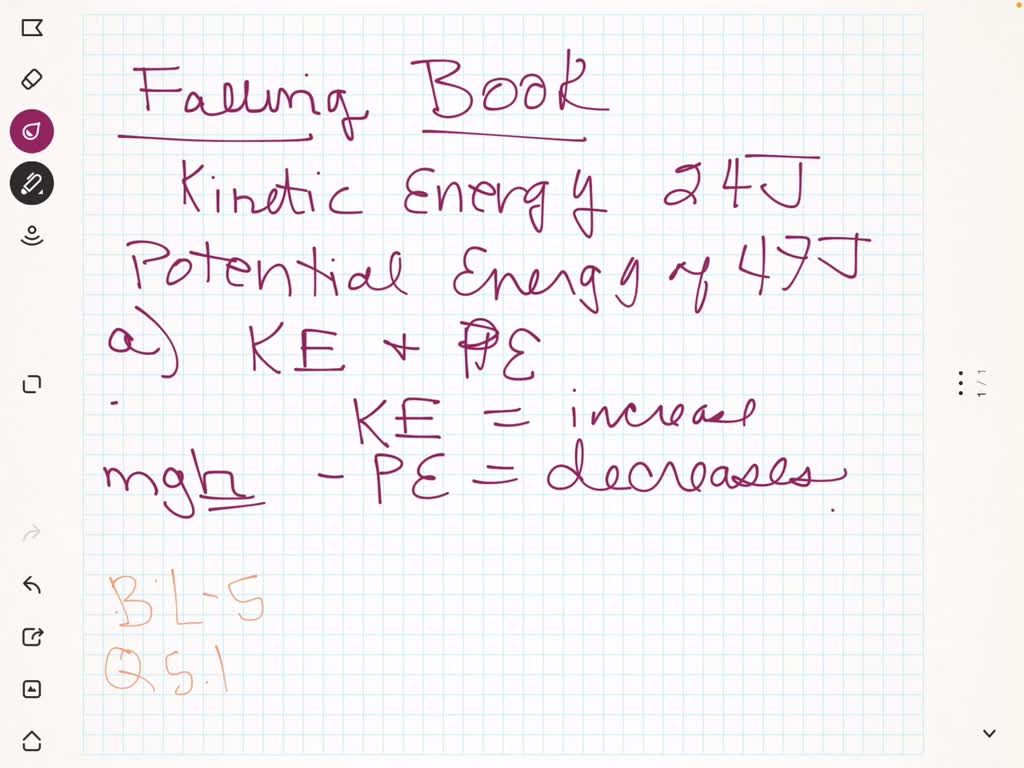 Falling Book
Kinetic Energy 24J
Potential Energy of 47J
a) KE + PE
KE = increase
mgh - PE = decreases.
BL-5
Q5.1
1/1